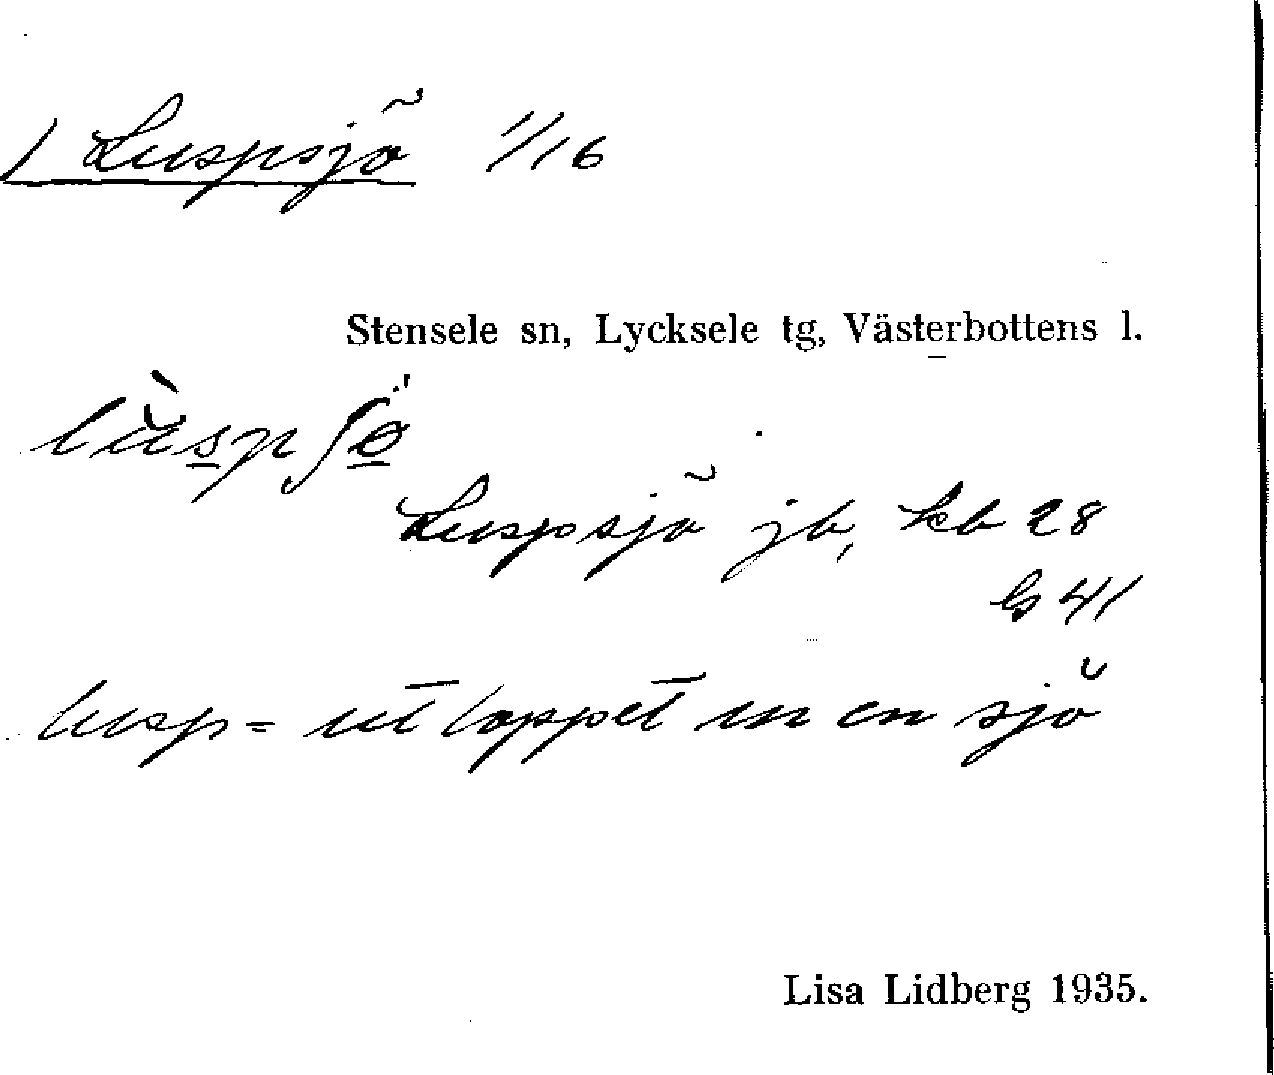 1 Luspsjö 1/16
Stensele sn, Lycksele tg, Västerbottens l.
lùspʃø
Luspsjö jb, kb 28
Gs 41
lusp = utloppet ur en sjö
Lisa Lidberg 1935.